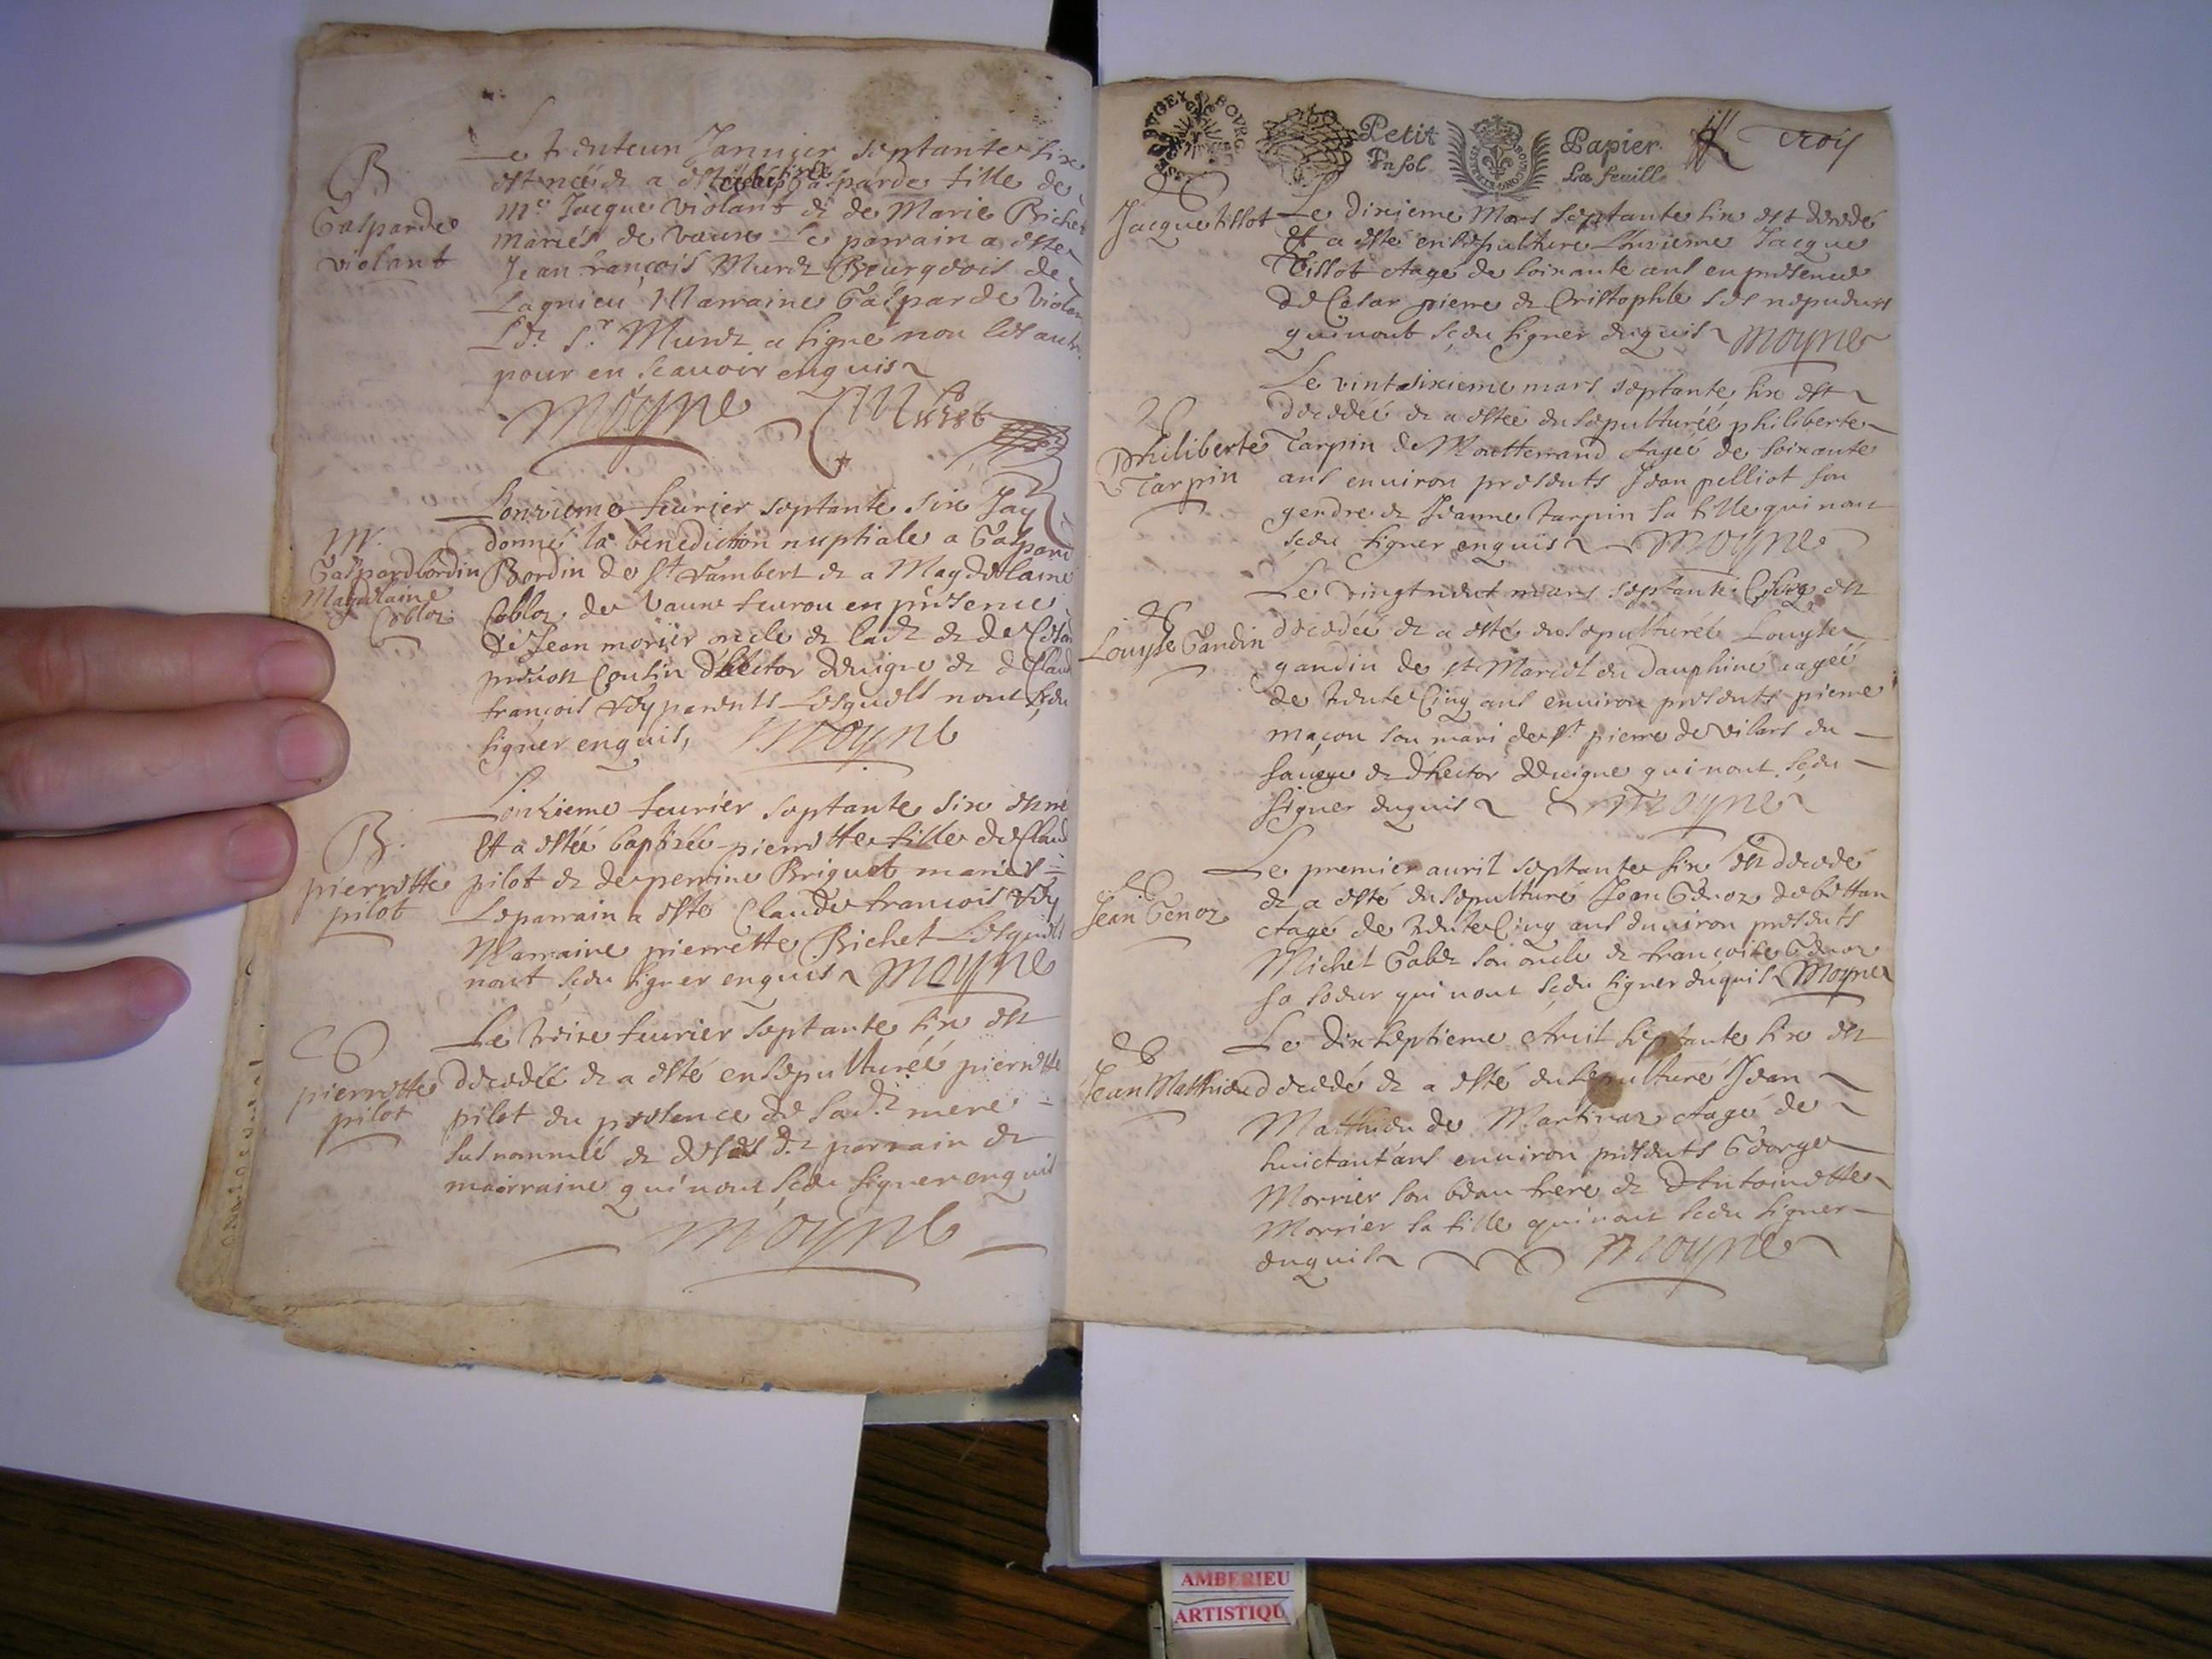 B
Gasparde
violant
Le trenteun Januier septante six
est née & a esté baptisée Gasparde fille de
Mre Jacque violant & de Marie Richet
mariés de vaux Le parrain a esté
Jean françois Muret Bourgeois de
Lagnieu, Marraine Gasparde violan
Ldt Sr Muret a signé non les autr
pour en scauoir enquis
Moyne Muret
M.
Gaspard bordin
Magdelaine
Cobloz
Lonzieme feurier septante six Jay
donné la benediction nuptiale a Gaspard
Bordin de St Rambert & a Magdelaine
Cobloz de Vaux feurou en présence
de Jean morier oncle de ladt & de Cesar
preuost Cousin d'hector deuigne & de Claud
françois Rey parents Lesquels nont sçeu
signer enquis, Moyne
B.
pierrette
pilot
Lonzieme feurier septante six est né
Et a estéé baptizée pierrette fille de Claud
pilot & de perrine Briguet mariés
Le parrain a esté Claude francois Rey
Marraine pierrette Richet Lesquels
nont sçeu signer enquis Moyne
S
pierrette
pilot
Le treize feurier septante six est
decedée & a esté ensepulturéé pierrette
pilot en presence de sadt mere
susnommée & de sesdt parrain &
mairraine qui nont sceu signer enquis
Moyne
BVGEY BOVRG
Petit
In fol.
Papier
La feuill
trois
S
Jacque tillot
Le dixieme Mars septante six est decedé
Et a esté ensepulture Lonzieme Jacque
Tillot Aagé de soixante ans en presence
de Cesar pierre & Cristophle ses nepueurs
qui nont sçeu signer enquis Moyne
S
Philiberte
Tarpin
Le vint sixieme mars septante six est
decedéé & a estéé ensepulturéé philiberte
Tarpin de Montferrand Aagéé de soixante
ans enuiron presents Jean pelliot son
gendre & Jeanne tarpin sa fille qui nont
sçeu signer enquis Moyne
S
Louyse Gandin
Le vingt neuf mars septante six est
decedéé & a esté ensepulturéé Louyse
gandin de st Marcel en Dauphiné aagéé
de trente Cinq ans enuiron presents pierre
maçon son mari de st pierre de vilars en
sauoye & d'hector deuigne qui nont sçeu
signer enquis Moyne
S
Jean Genoz
Le premier auril septante six est decedé
& a esté ensepulturé Jean Genoz de bettan
Aagé de trente Cinq ans enuiron presents
Michel Gabet son oncle & françoise Genoz
sa soeur qui nont sçeu signer enquis Moyne
S
Jean Matthieu
Le Dix septieme Auril septante six est
decedé & a esté ensepulturé Jean
Matthieu de Martinaz Aagé de
huictant ans enuiron presents George
Morrier son beau frere & Antoinette
Morrier sa fille qui nont sceu signer
enquis Moyne
AMBERIEU
ARTISTIQU